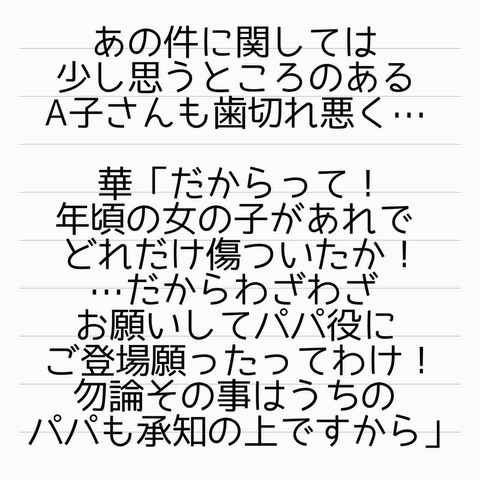 あの件に関しては
少し思うところのある
A子さんも歯切れ悪く…
華「だからって！
年頃の女の子があれで
どれだけ傷ついたか！
…だからわざわざ
お願いしてパパ役に
ご登場願ったってわけ！
勿論その事はうちの
パパも承知の上ですから」